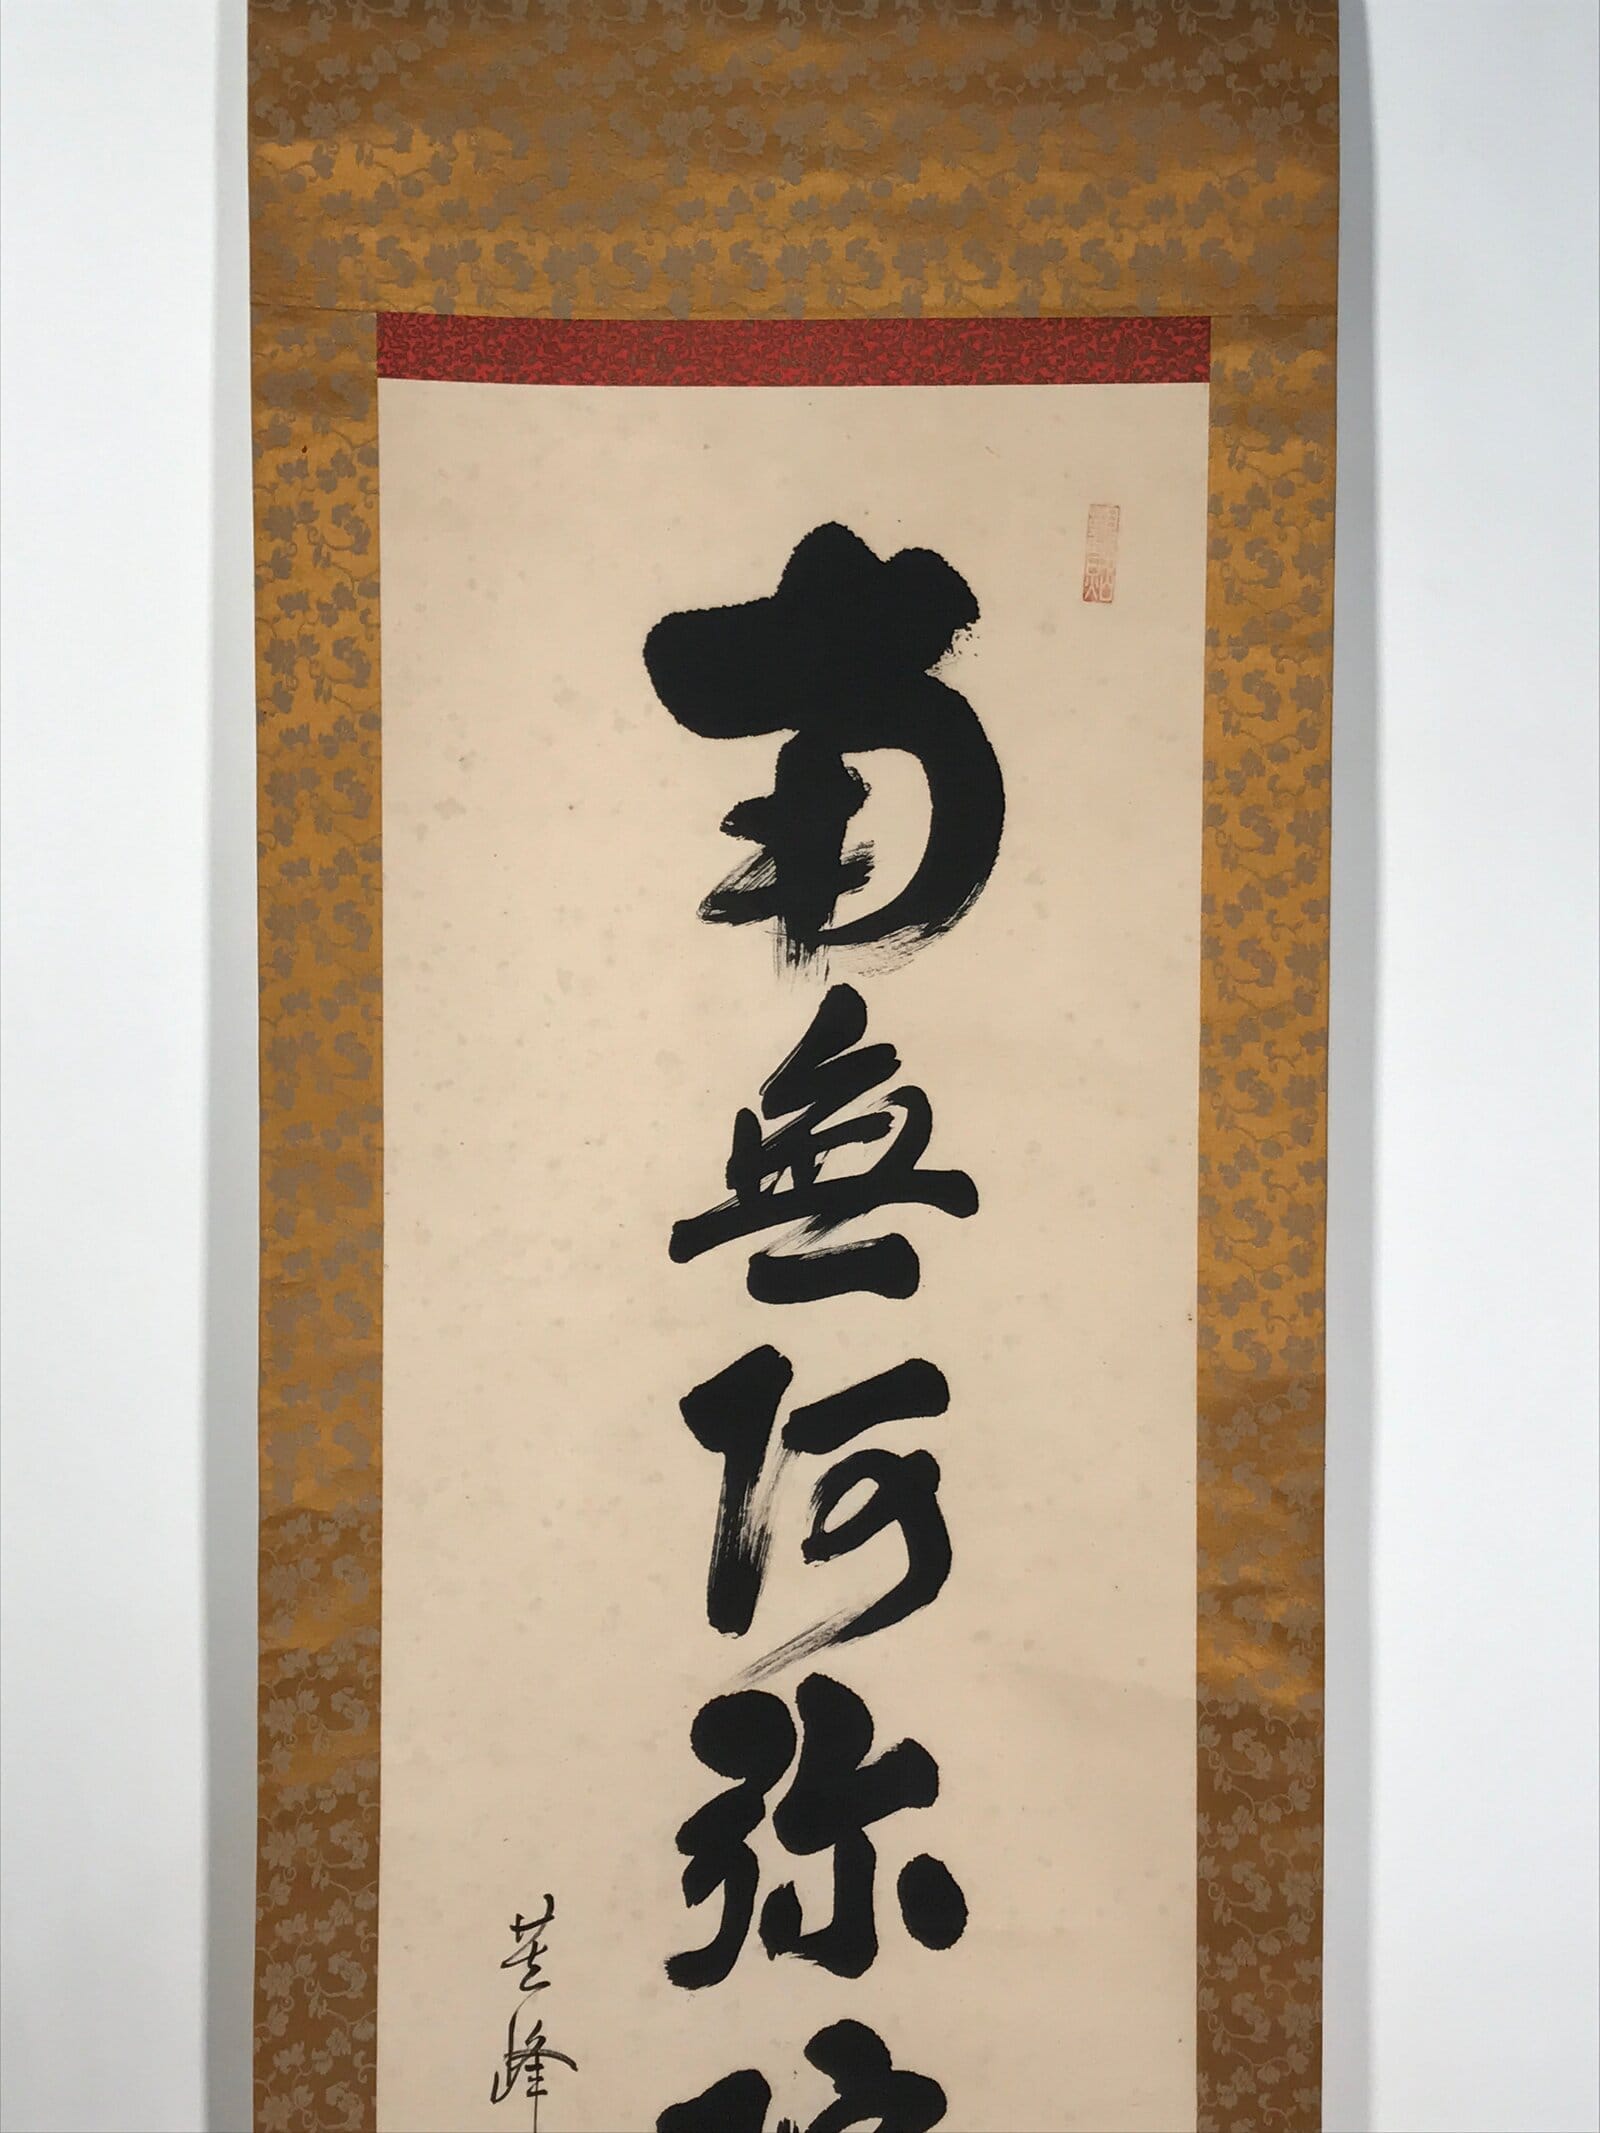 南無阿弥陀
峰